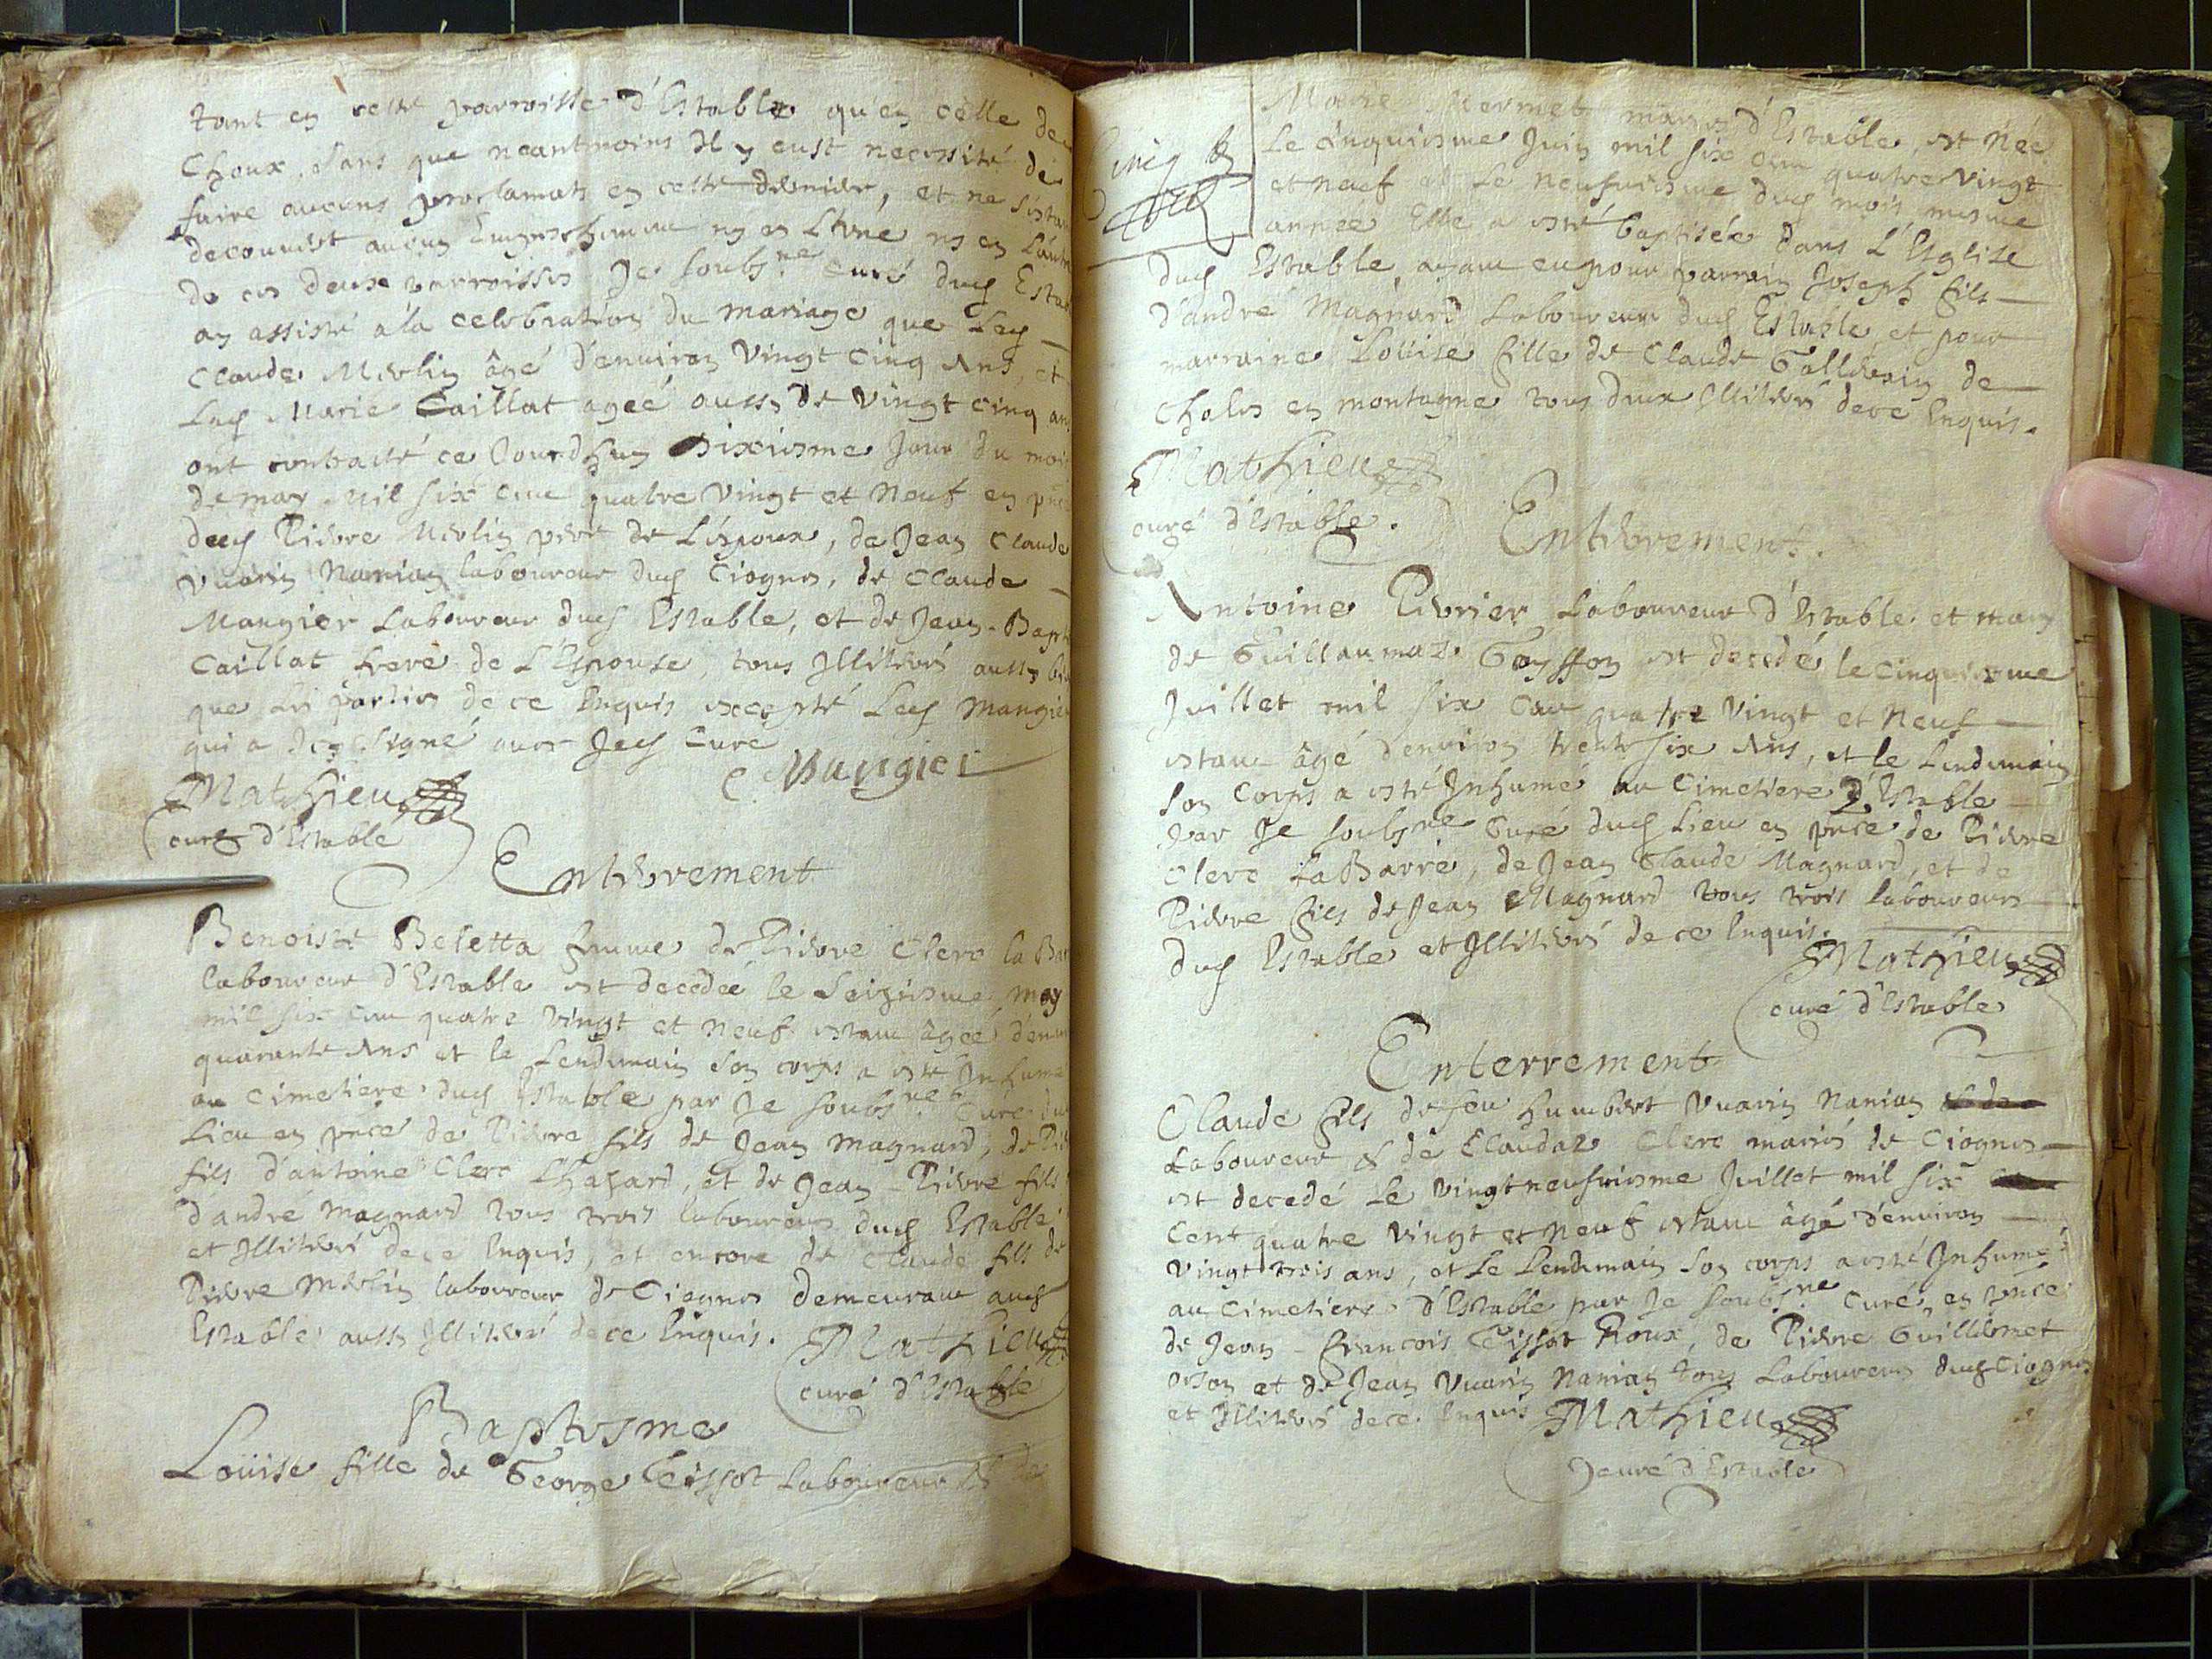 tant en cette parroisse d'Estable qu'en celle de
Choux, sans que neantmoins Il y eust necessité de
faire aucuns proclamats en cette derniere, et ne s'estant
decouvert aucun Empeschement ny en L'une ny en L'autre
de ces deux parroisses Je soubs.né Curé dud Estable
ay assisté a la celebration du mariage que Led
Claude Merlin âgé d'environ Vingt Cinq Ans, et
Lad Marie Caillat agée aussy de Vingt Cinq ans
ont contracté ce Jourd'huy Sixiesme Jour du mois
de may Mil six cent quatre Vingt et Neuf en pnce
dud Pierre Merlin pere de L'espoux, de Jean Claude
Vuarin Nanian laboureur dud Ciognes, de Claude
Mangier Laboureur dud Estable, et de Jean-Bapt
Caillat frere de L'Espouse, tous Illiterés aussy bien
que les parties de ce Enquis excepté Led Mangier
qui a Icy signé avec Jed Curé
C Mangier
Mathieu
curé d'Estable
Enterrement
Benoiste Beletta femme de Pierre Clerc la Bar
laboureur d'Estable est decedée le Seiziesme may
mil six cent quatre Vingt et Neuf estant âgée d'envi
quarante Ans et le Lendemain son corps a esté Inhumé
au Cimetiere dud Estable par Je soubs.né Curé dud
Lieu en pnce de Pierre fils de Jean Magnard, de Pi
fils d'antoine Clerc Lhazard, et de Jean-Pierre fils
d'andré Magnard tous trois laboureurs dud Estable
et Illiterés de ce Enquis, et encore de Claude fils de
Pierre Merlin laboureur de Ciognes demeurant aud
Estable aussy Illiteré de ce Enquis. Mathieu
curé d'Estable
Baptesme
Loüise fille de George Teissot Laboureur & de
Marie Mermet mariés d'Estable, est Née
Le Cinquiesme Juin mil six cent quatre Vingt
et neuf et Le Neufviesme dud mois mesme
année Elle a esté baptisée dans L'Eglise
dud Estable, ayant eu pour parrain Joseph fils
d'andré Magnard Laboureur dud Estable, et pour
marraine Loüise fille de Claude Tallievin de
Chales en montagne tous deux Illiterés de ce Enquis.
Mathieu
curé d'Estable.
Enterrement.
Antoine Perrier Laboureur d'Estable et mary
de Guillaumaz Goyffon est decedé le Cinquiesme
Juillet mil six Cent quatre Vingt et Neuf
estant âgé d'environ trente six Ans, et le Lendemain
Son Corps a esté Inhumé au Cimetiere D'Estable
par Je soubs.né Curé dud Lieu en pnce de Pierre
Clerc La Barre, de Jean Claude Magnard, et de
Pierre fils de Jean Magnard tous trois laboureurs
dud Estable et Illiterés de ce Enquis.
Mathieu
curé d'Estable
Enterrement
Claude fils de feu Humbert Vuarin Nanian
Laboureur & de Claudaz Clerc mariés de Ciognes
est decedé Le Vingtneufviesme Juillet mil six
Cent quatre Vingt et Neuf estant âgé d'environ
Vingt trois ans, et Le Lendemain Son corps a esté Inhumé
au Cimetiere d'Estable par Je soubs.né Curé en pnce
de Jean-François Teissot Roux, de Pierre Guillermet
orson et de Jean Vuarin Nanian tous Laboureurs dud Ciognes
et Illiterés de ce Enquis Mathieu
curé d'Estable